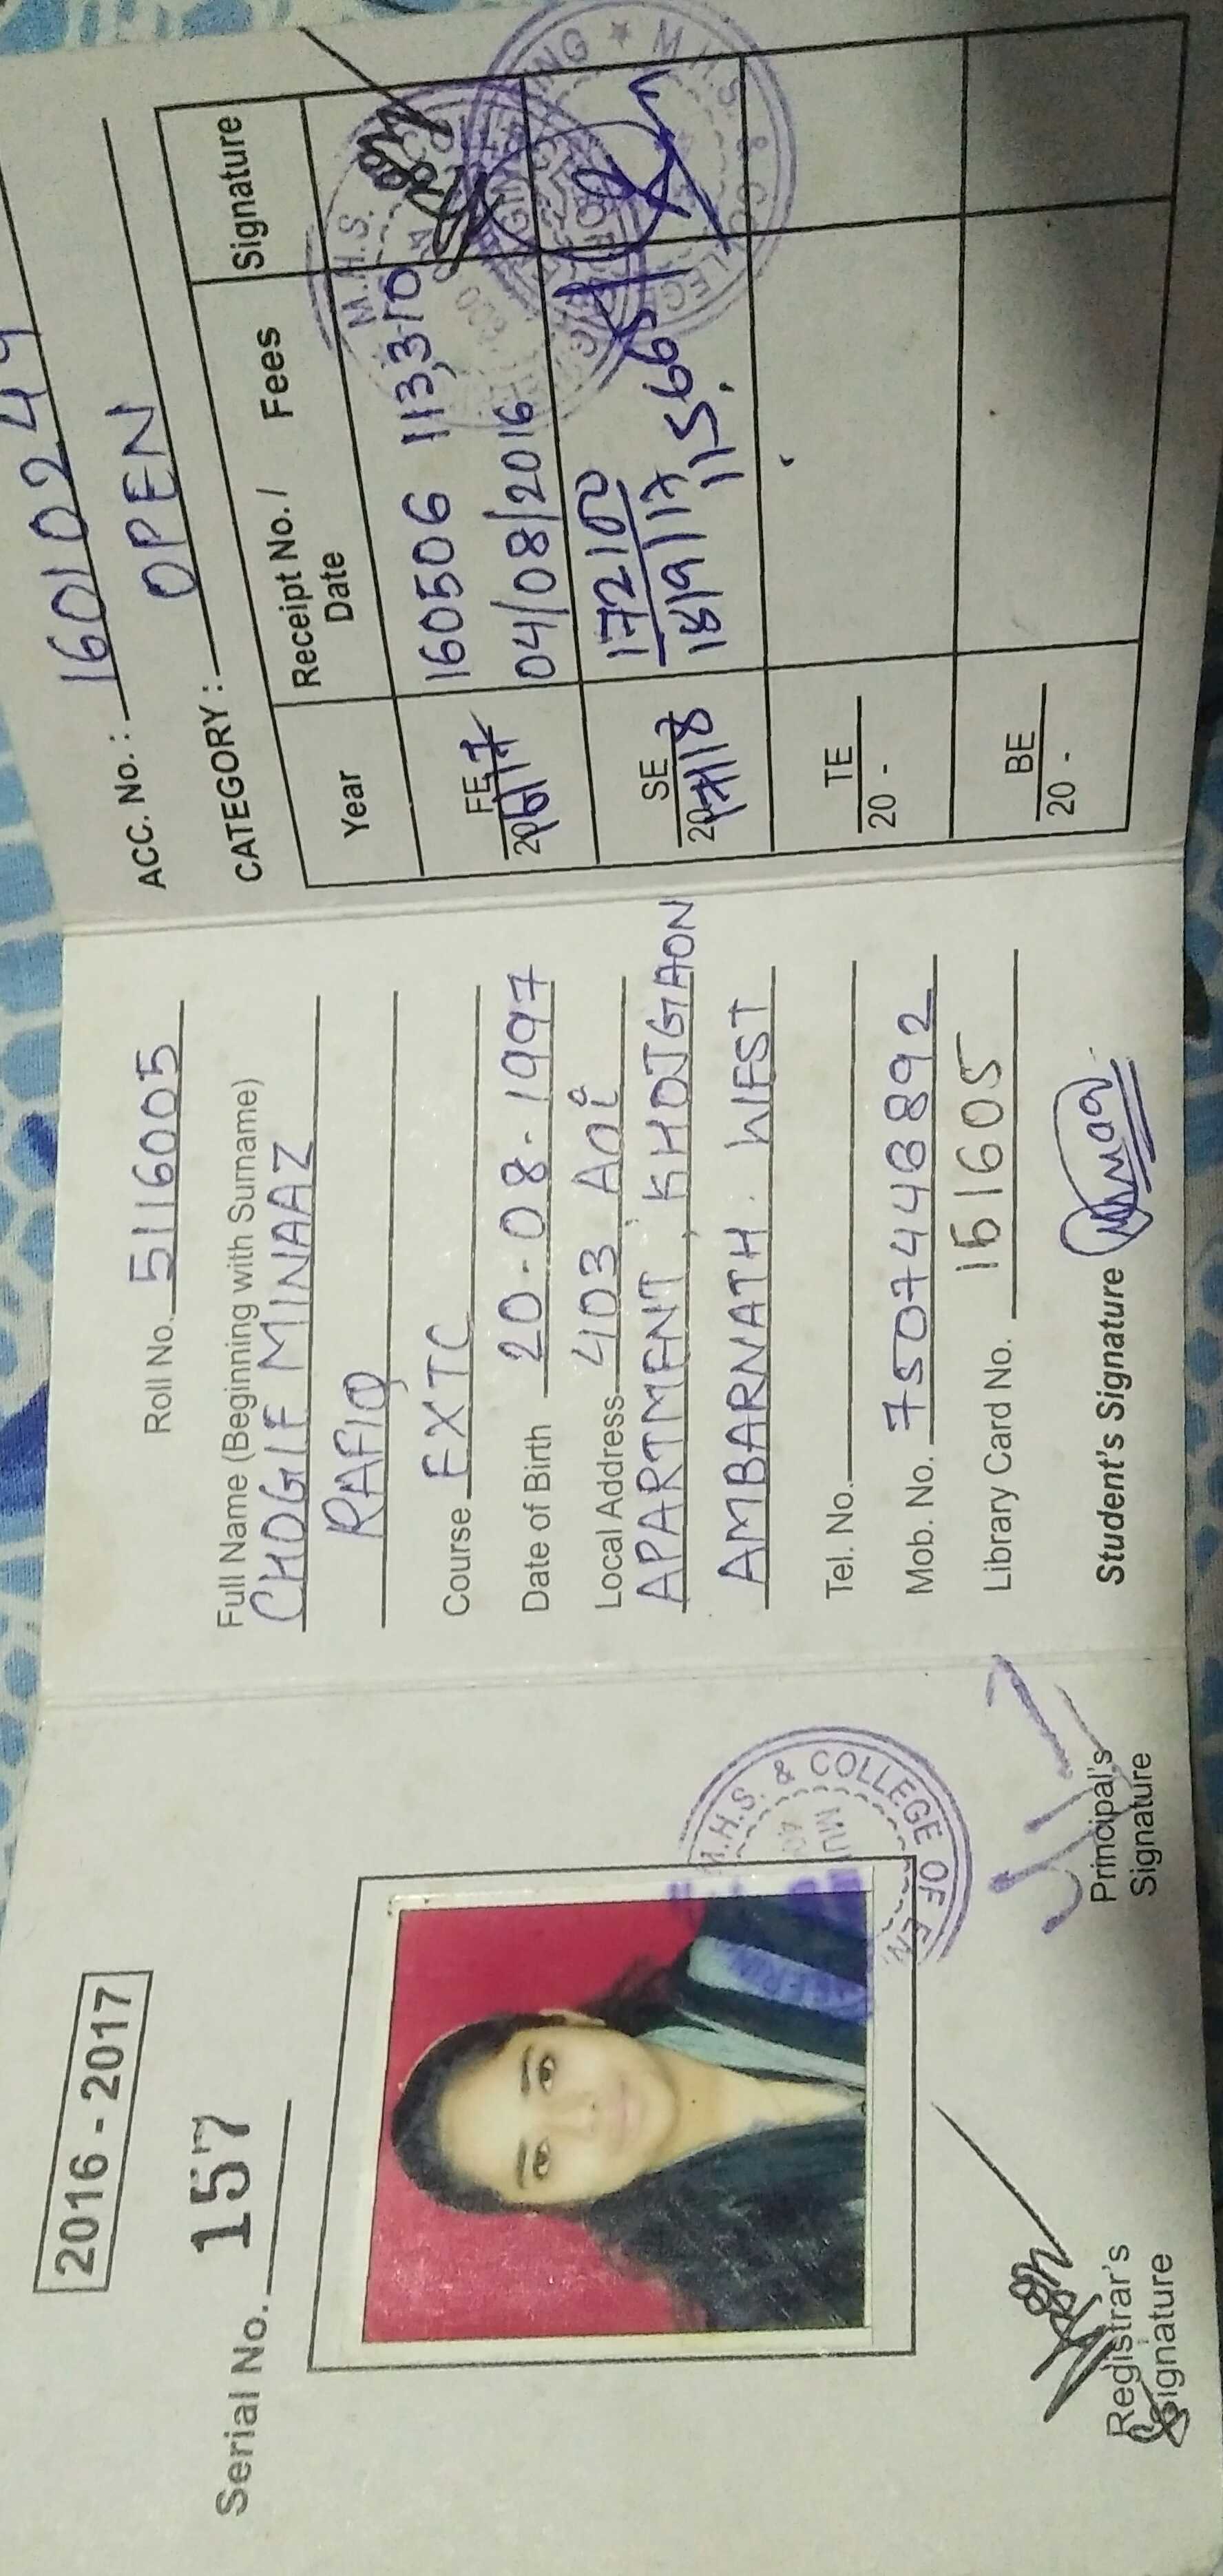 2016 - 2017
Serial No. 157
M.H.S. & COLLEGE OF EN
Registrar's Signature
Principal's Signature
Roll No. 5116005
Full Name (Beginning with Surname)
CHOGLE MINAAZ
RAFIQ
Course EXTC
Date of Birth 20-08-1997
Local Address 403, Aoi
APARTMENT, KHOJGAON
AMBARNATH. WEST
Tel. No.
Mob. No. 7507448892
Library Card No. 151605
Student's Signature
ACC. No.: 1601024
CATEGORY: OPEN
Year Receipt No. / Date Fees Signature
FE 2016-17 160506 113,310
04/08/2016
SE 2017-18 172102
18/9/17 115665
TE 20 -
BE 20 -
M.H.S.
M.H.S. & COLLEGE